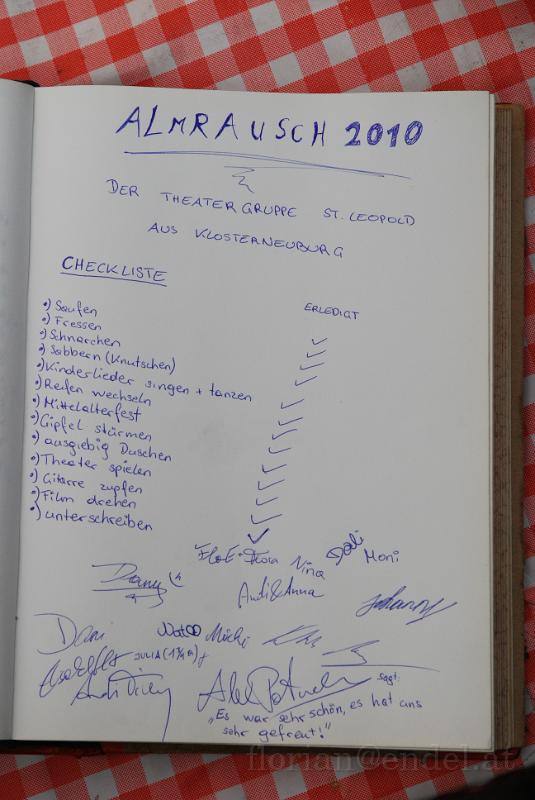 ALMRAUSCH 2010
DER THEATERGRUPPE ST. LEOPOLD
AUS KLOSTERNEUBURG
CHECKLISTE
ERLEDIGT
•) Saufen ✓
•) Fressen ✓
•) Schnarchen ✓
•) Sabbern (Knutschen) ✓
•) Kinderlieder singen + tanzen ✓
•) Reifen wechseln ✓
•) Mittelalterfest ✓
•) Gipfel stürmen ✓
•) ausgiebig Duschen ✓
•) Theater spielen ✓
•) Gitarre zupfen ✓
•) Film drehen ✓
•) unterschreiben ✓
Flora Nina Moni
Andi&Anna
Dani Michi
JULIA
sagt:
„Es war sehr schön, es hat uns
sehr gefreut!"
florian@endel.at